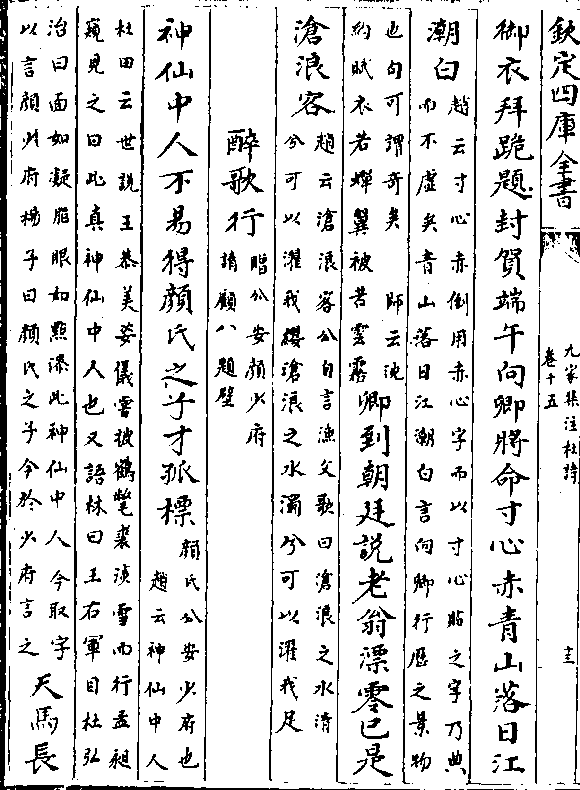 欽定四庫全書
九家集注杜詩
卷十五
十三
御衣拜跪題封賀端午向卿將命寸心赤青山落日江
潮白
趙云寸心赤倒用赤心字而以寸心貼之字乃典
而不虛矣青山落日江潮白言向卿行歴之景物
也句可謂奇矣 師云沈
約賦衣若蟬翼被若雲霧
卿到朝廷説老翁漂零已是
滄浪客
趙云滄浪客公自言漁父歌曰滄浪之水清
兮可以濯我纓滄浪之水濁兮可以濯我足
醉歌行
贈公安顔少府
請顧八題壁
神仙中人不易得顔氏之子才孤標
顔氏公安少府也
趙云神仙中人
杜田云世説王恭美姿儀嘗被鶴氅裘淡雪而行孟昶
窺見之曰此真神仙中人也又語林曰王右軍目杜弘
治曰面如凝脂眼如點漆此神仙中人今取字
以言顔少府楊子曰顔氏之子今於少府言之
天馬長